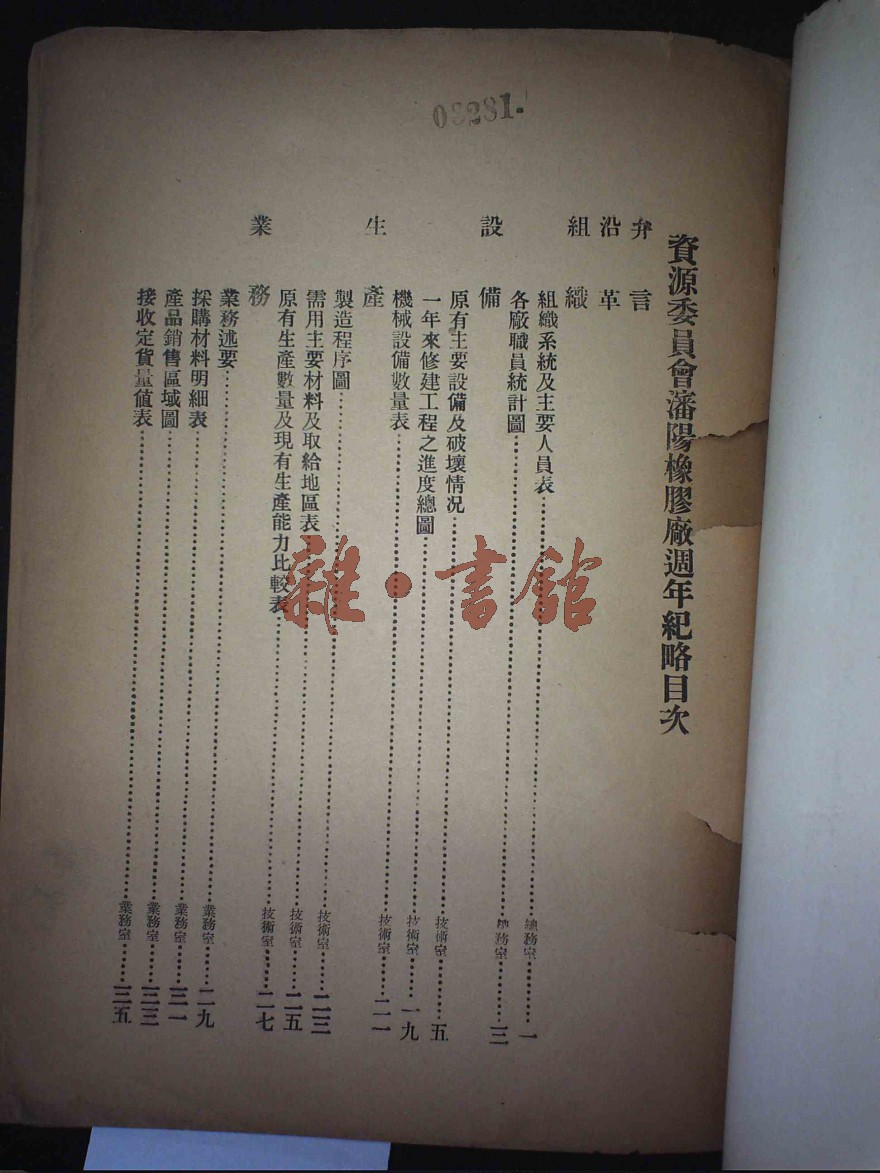 資源委員會瀋陽橡膠廠週年紀略目次
弁言
沿革
組織
組織系統及主要人員表……總務室……一
各廠職員統計圖……總務室……三
設備
原有主要設備及破壞情况……技術室……五
一年來修建工程之進度總圖……技術室……一九
機械設備數量表……技術室……二一
生產
製造程序圖……技術室……二三
需用主要材料及取給地區表……技術室……二五
原有生產數量及現有生產能力比較表……技術室……二七
業務
業務述要……業務室……二九
採購材料明細表……業務室……三一
產品銷售區域圖……業務室……三三
接收定貨量值表……業務室……三五
雜·書館